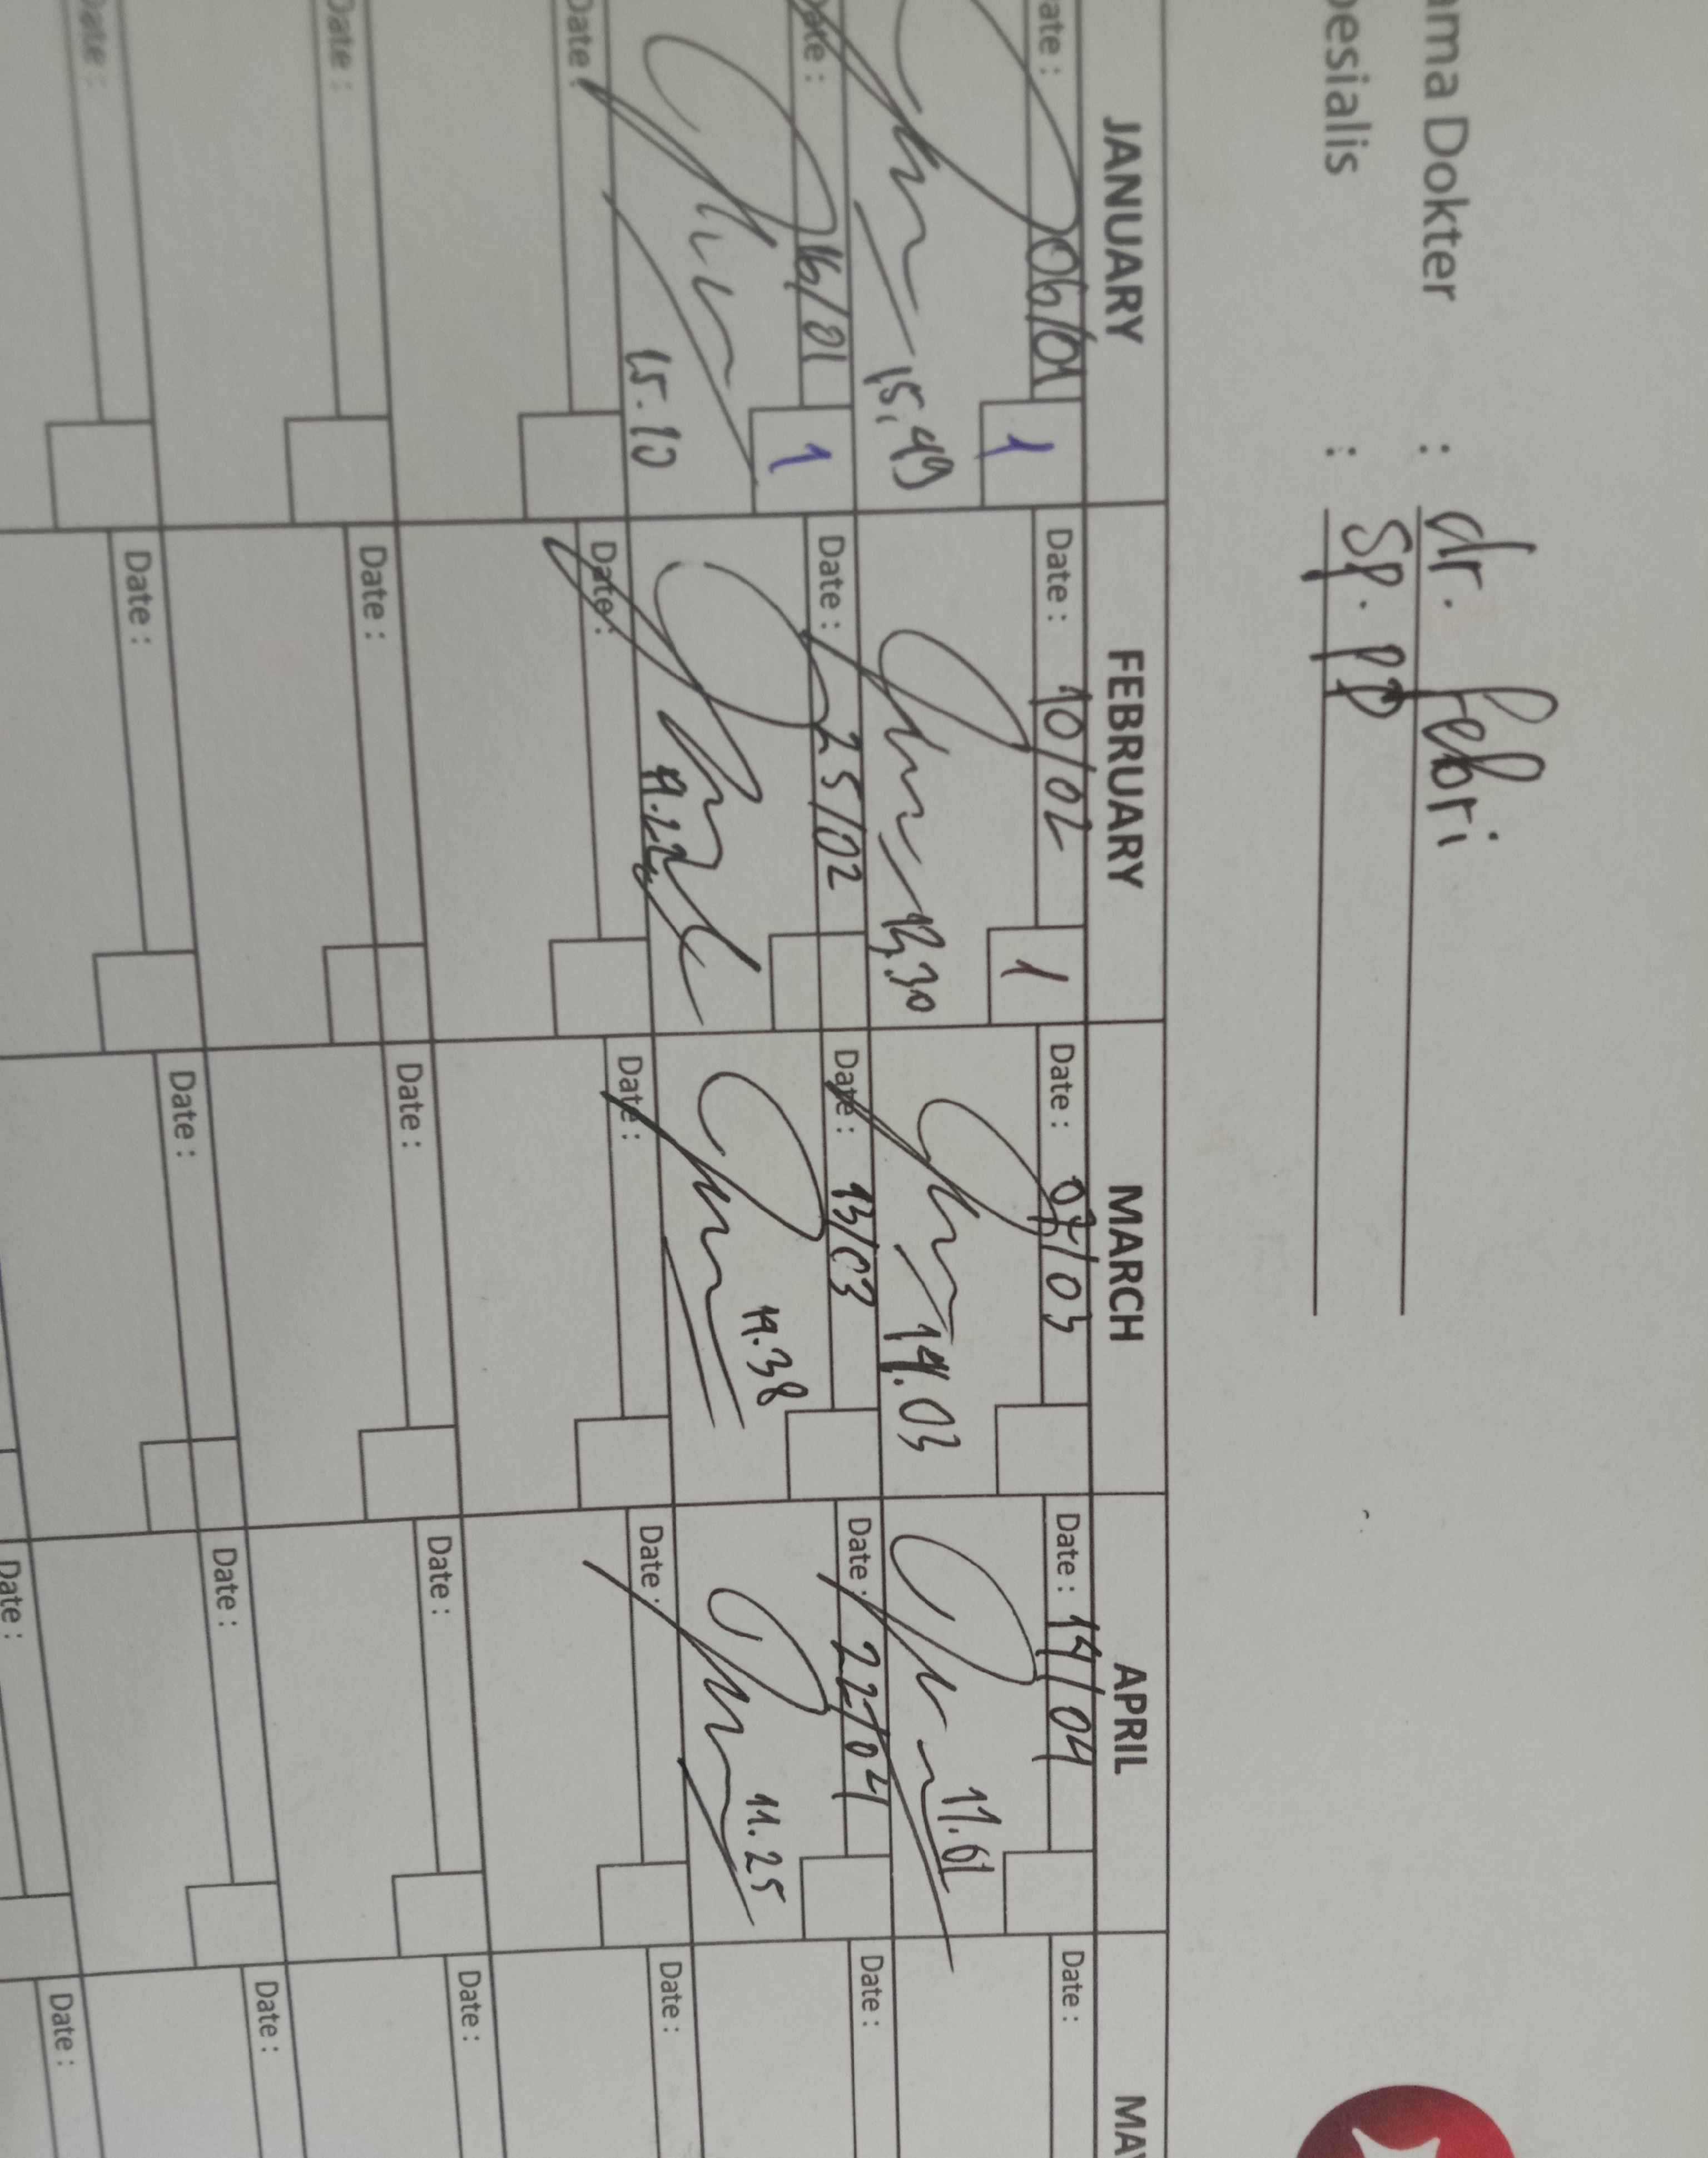 ama Dokter : dr. Febri
pesialis : Sp. PD
JANUARY FEBRUARY MARCH APRIL MAY
Date : 06/01 1 Date : 10/02 1 Date : 07/03 Date : 14/04 Date :
15.49 13.30 14.03 11.61
Date : 16/01 1 Date : 25/02 Date : 13/03 Date : 22/04 Date :
15.10 11.38 11.25
Date : Date : Date : Date : Date :
Date : Date : Date : Date : Date :
Date : Date : Date : Date : Date :
Date : Date :